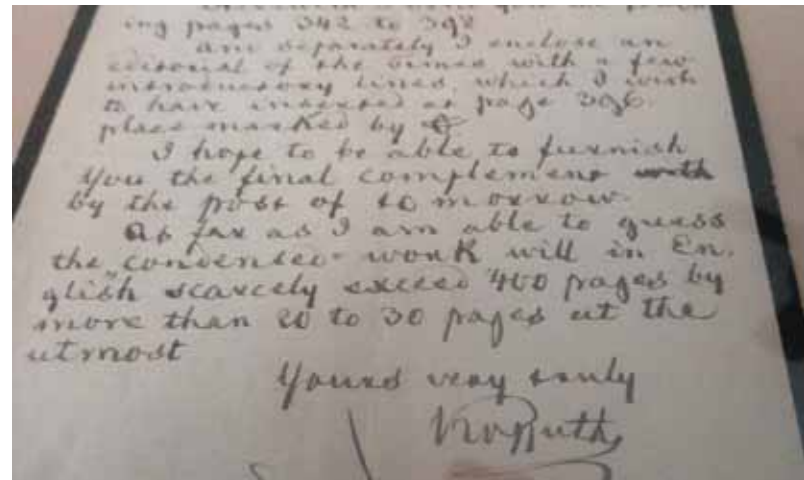 ing pages 342 to 392
and separately I enclose an
editorial of the times with a few
introductory lines, which I wish
to have inserted at page 396.
place marked by
I hope to be able to furnish
you the final complement with
by the post of to morrow.
As far as I am able to guess
the condensed work will in En-
glish scarcely exceed 400 pages by
more than 20 to 30 pages at the
utmost
Yours very truly
Kossuth